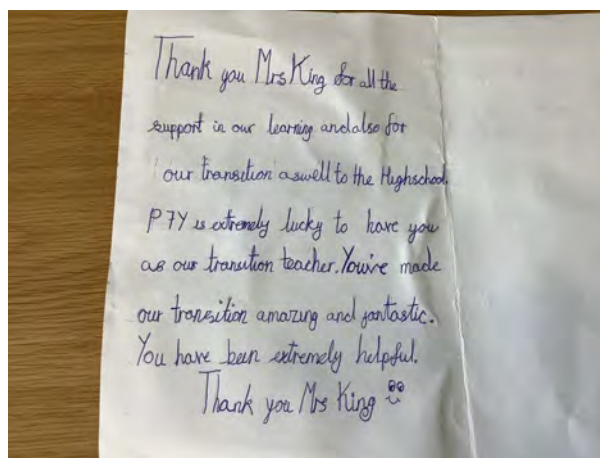 Thank you Mrs King for all the
support in our learning and also for
our transition aswell to the Highschool.
P7Y is extremely lucky to have you
as our transition teacher. You've made
our transition amazing and fantastic.
You have been extremely helpful.
Thank you Mrs King